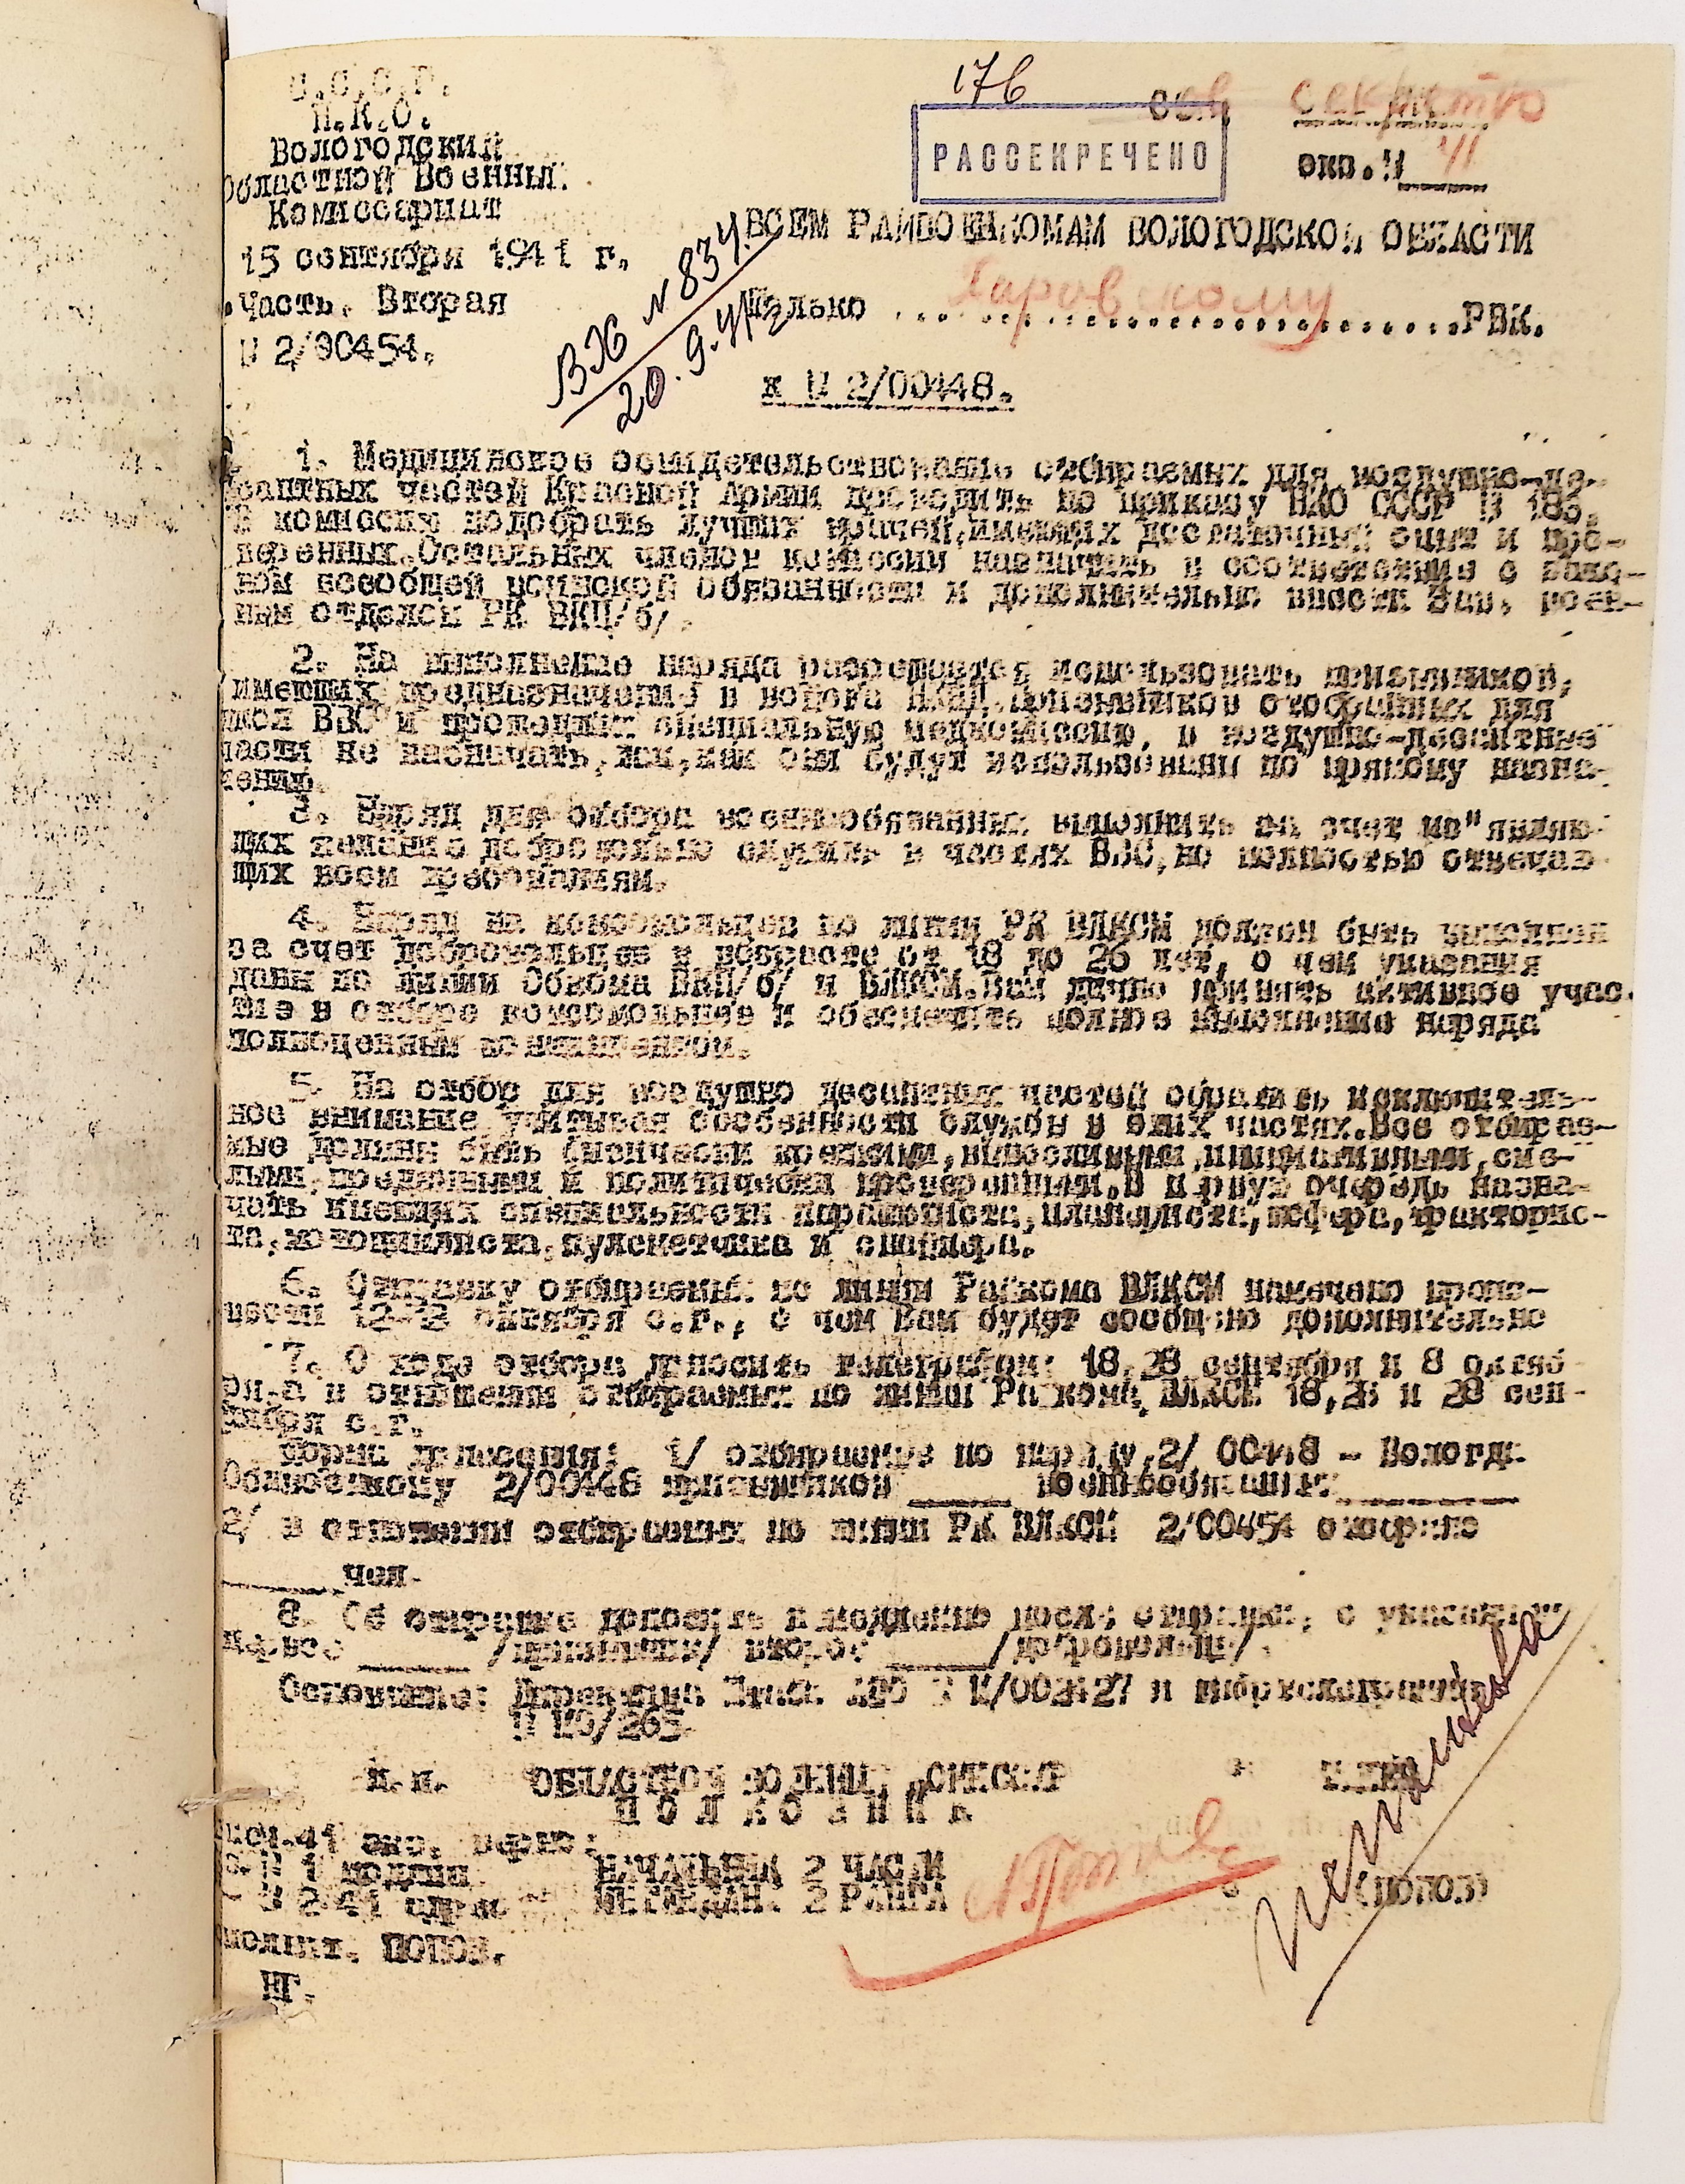 176
С.С.С.Р.
Н.К.О.
Вологодский
Областной Военный
Комиссариат
15 сентября 1941 г.
часть. Вторая
№ 2/00454.
сов секретно
РАССЕКРЕЧЕНО
экз. №
ВСЕМ РАЙВОЕНКОМАМ ВОЛОГОДСКОЙ ОБЛАСТИ
Вх № 834
20.9.41
Только Харовскому РВК.
к № 2/00448.
1. Медицинское освидетельствование отбираемых для воздушно-де-
сантных частей Красной Армии проводить по приказу НКО СССР № 184.
В комиссию подобрать лучших врачей, имеющих достаточный опыт и про-
веренных. Остальных членов комиссии назначить в соответствии с зако-
ном всеобщей воинской обязанности и дополнительно ввести Зав. воен-
ным отделом РК ВКП/б/.
2. На выполнение наряда разрешается использовать призывников,
имеющих предназначение в войска НКВД. Призывников отобранных для
школ ВВС и прошедших специальную медкомиссию, в воздушно-десантные
части не назначать, так, как они будут использованы по прямому назна-
чению.
3. Наряд для отбора военнообязанных выполнить за счет не" являю
щих желание добровольно служить в частях ВВС, но полностью отвечаю
щих всем требованиям.
4. Наряд на комсомольцев по линии РК ВЛКСМ должен быть выполнен
за счет добровольцев в возрасте от 18 до 26 лет, о чем указания
даны по линии Обкома ВКП/б/ и ВЛКСМ. Вам лично принять активное учас
тие в отборе комсомольцев и обеспечить полное выполнение наряда
полноценным
5. На отбор для воздушно десантных частей обратить исключитель-
ное внимание учитывая особенности службы в этих частях. Все отбирае-
мые должны быть физически крепкими, выносливыми, инициативными, сме-
лыми, преданными и политически проверенными. В первую очередь назна-
чать имеющих специальности парашютиста, планериста, шофера, тракторис-
та, мотоциклиста, пулеметчика и снайпера.
6. Отправку отбираемых по линии Райкома ВЛКСМ намечено произ-
вести октября с.г., о чем Вам будет сообщено дополнительно
7. О ходе отбора доносить телеграфом: 18, 28 сентября и 8 октяб
ря-а в отношении отбираемых по линии Райкома ВЛКСМ 18, 23 и 28 сен-
тября с.г.
Форма донесения: 1/ отбираемые по наряду 2/ 00448 - Вологда
Облвоенкому 2/00448 призывников военнообязанных
2/ в отношении отбираемых по линии РК ВЛКСМ 2/00454 отобрано
чел.
8. Об отправке доносить немедленно после отправки, с указанием
первое /призывники/ второе /добровольцы/.
Основание: Директива
п.п. ОБЛАСТНОЙ ВОЕННЫЙ КОМИССАР
ПОЛКОВНИК
НАЧАЛЬНИК 2 ЧАСТИ
ИНТЕНДАНТ 2 РАНГА
(ПОПОВ)
исполнит. ПОПОВ.
НГ.